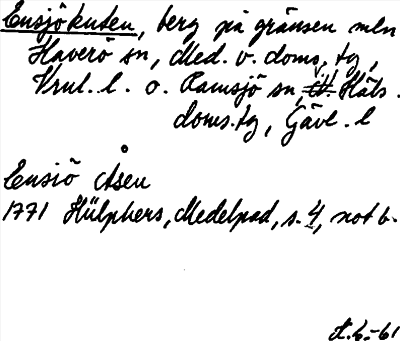 Ensjökuten, berg på gränsen mln
Haverö sn, Med. v. doms. tg,
Vrnl. l. o. Ramsjö sn, V. Häls.
doms. tg, Gävl. l
Ensiö Åsen
1771 Hülphers, Medelpad, s. 4, not b.